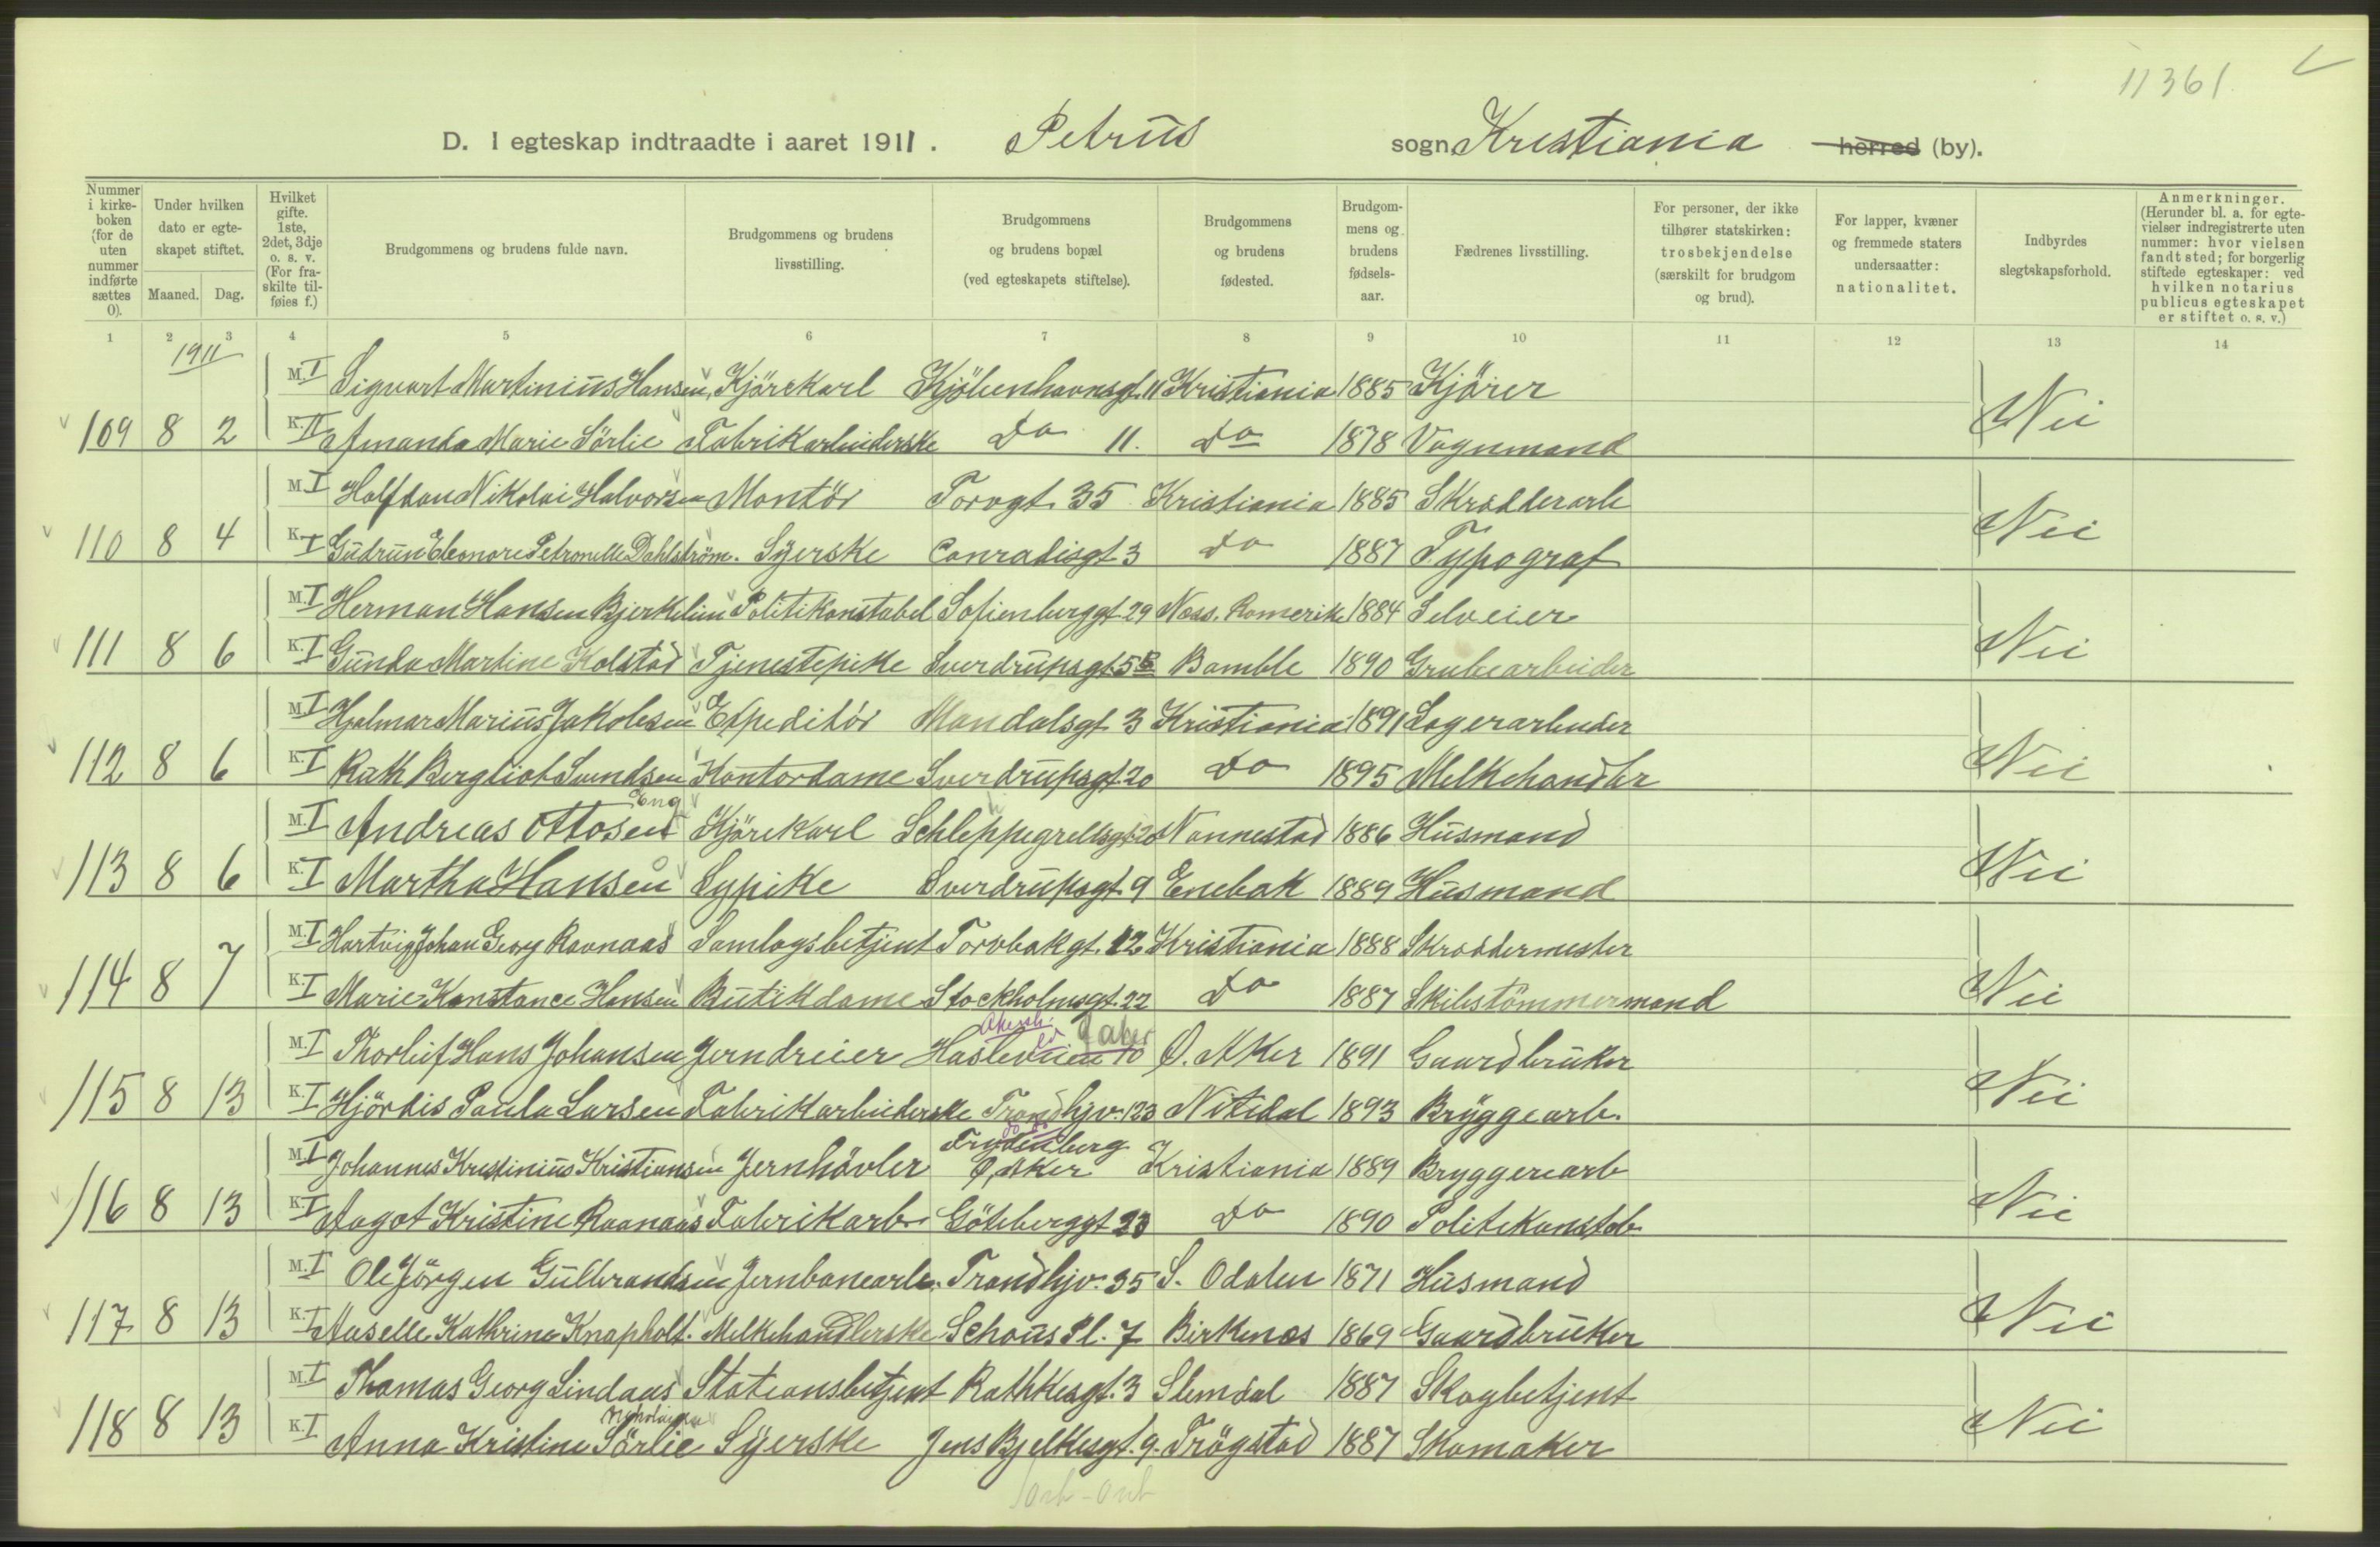 11361
D. I egteskap indtraadte i aaret 1911. Petrus sogn Kristiania herred (by).
Nummer i kirkeboken (for de uten nummer indførte sættes 0).
Under hvilken dato er egteskapet stiftet.
Maaned. Dag.
Hvilket gifte. 1ste, 2det, 3dje o. s. v. (For fraskilte tilføies f.)
Brudgommens og brudens fulde navn.
Brudgommens og brudens livsstilling.
Brudgommens og brudens bopæl (ved egteskapets stiftelse).
Brudgommens og brudens fødested.
Brudgommens og brudens fødselsaar.
Fædrenes livsstilling.
For personer, der ikke tilhører statskirken: trosbekjendelse (særskilt for brudgom og brud).
For lapper, kvæner og fremmede staters undersaatter: nationalitet.
Indbyrdes slegtskapsforhold.
Anmerkninger. (Herunder bl. a. for egtevielser indregistrerte uten nummer: hvor vielsen fandt sted; for borgerlig stiftede egteskaper: ved hvilken notarius publicus egteskapet er stiftet o. s. v.)
1 2 3 4 5 6 7 8 9 10 11 12 13 14
1911
M. I Sigvart Martinius Hansen, Kjörekarl Kjöbenhavnsgt. 11 Kristiania 1885 Kjörer
109 8 2 K. II Amanda Marie Sörlie Fabrikarbeiderske Do 11. Do 1878 Vognmand Nei
M. I Halfdan Nikolai Halvorsen Montör Torvgt. 35 Kristiania 1885 Skrädderarb
110 8 4 K. I Gudrun Eleonore Petronelle Dahlström. Syerske Conradisgt 3 Do 1887 Typograf Nei
M. I Herman Hansen Bjerkelien Politikonstabel Sofienberggt 29 Næss. Romerike 1884 Selveier
111 8 6 K. I Gunda Martine Kolstad Tjenestepike Sverdrupsgt. 5B Bamble 1890 Grubearbeider Nei
M. I Hjalmar Marius Jakobsen Expeditör Mandalsgt 3 Kristiania 1891 Lagerarbeider
112 8 6 K. I Ruth Bergliot Svendsen Kontordame Sverdrupsgt 20 Do 1895 Melkehandler Nei
Eng
M. I Andreas Ottosen Kjörekarl Schleppegrellsgt 20 Nannestad 1886 Husmand
113 8 6 K. I Martha Hansen Sypike Sverdrupsgt. 9 Enebak 1889 Husmand Nei
M. I Hartvig Johan Georg Ravnaas Samlagsbetjent Torvbakgt. 12 Kristiania 1888 Skræddermester
114 8 7 K. I Marie Konstance Hansen Butikdame Stockholmsgt. 22 Do 1887 Skibstömmermand Nei
Ø aker
M. I Thorleif Hans Johansen Jerndreier Hasleveien 10 Ø. Aker 1891 Gaardbruker
115 8 13 K. I Hjördis Paula Larsen Fabrikarbeiderske Trondhjv. 123 Nitedal 1893 Bryggearb. Nei
Frydenberg
M. I Johannes Kristinius Kristiansen Jernhövler Ø. Aker Kristiania 1889 Bryggerearb
116 8 13 K. I Aagot Kristine Raanaas Fabrikarb. Göteberggt 23 Do 1890 Politikonstab. Nei
M. I Ole Jörgen Gulbrandsen Jernbanearb. Trondhjv. 35 S. Odalen 1871 Husmand
117 8 13 K. I Aaselle Kathrine Knapholt. Melkehandlerske Schous Pl. 7 Birkenæs 1869 Gaardbruker Nei
M. I Thomas Georg Lindaas Stationsbetjent Rathkesgt. 3 Slemdal 1887 Skogbetjent
118 8 13 K. I Anna Kristine Sörlie Syerske Jens Bjelkesgt. 9. Trögstad 1887 Skomaker Nei